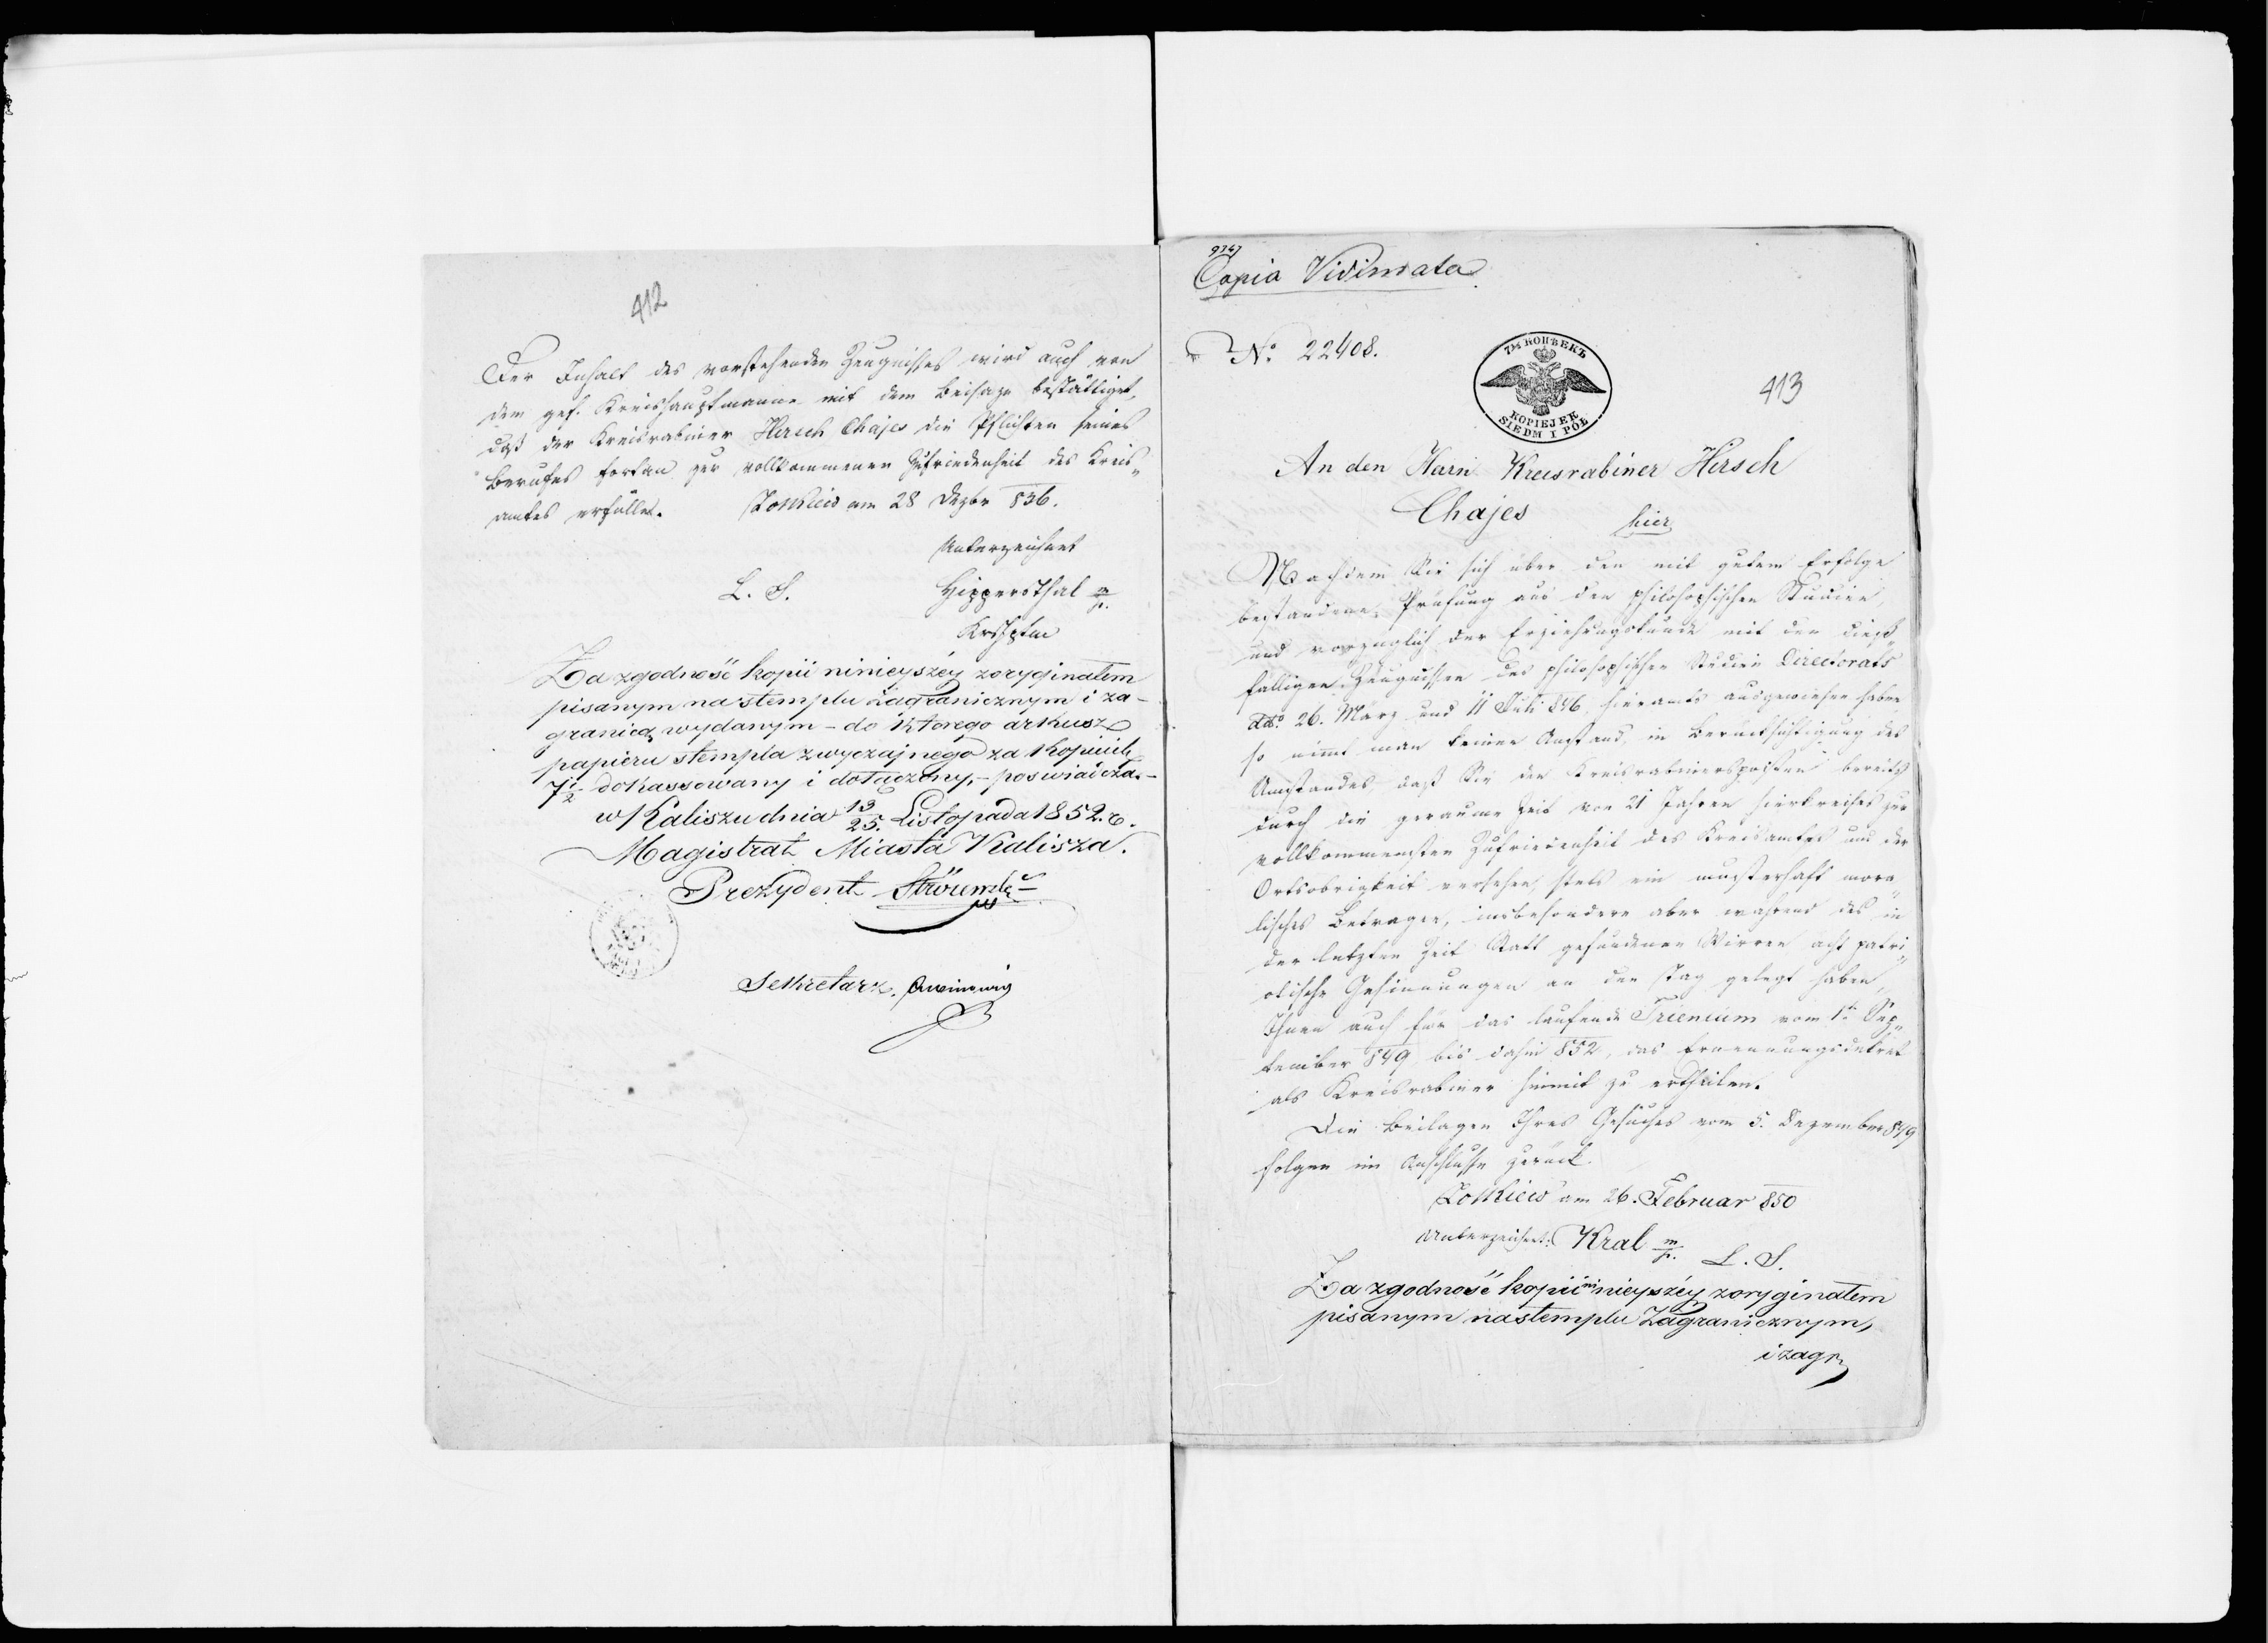 412
Der Inhalt des vorstehenden Zeugnißes wird auch von
dem gef. Kreishauptmanne mit dem Beisaze bestättiget,
daß der Kreisrabiner Hirsch Chajes die Pflichten seines
Berufes fortan zur vollkommenen Zufriedenheit des Kreis„
amtes erfüllet. Zolkiew am 28 Dezbr 836.
Unterzeichnet
L. S. Hippersthal m/p.
Krshptm
Za zgodność kopii ninieyszéy z oryginałem
pisanym na stemplu Zagranicznym i za-
granicą wydanym – do którego arkusz
papieru stempla zwyczajnego za kopiiek
7½ dokassowany i dołączony, – poswiadcza. –
w Kaliszu dnia 13/25. Listopada 1852. r.
Magistrat Miasta Kalisza.
Prezydent
Sekretarz.
9747
Copia Vidimata
No. 22408.
7½ КОПѢЕКЪ
KOPIEJEK
SIEDM I PÓŁ
413
An den Harn Kreisrabiner Hirsch
Chajes hier
Nachdem Sie sich über den mit gutem Erfolge
bestandene Prüfung aus den philosophischen Studien,
und vorzuglich der Erziehungskunde mit den dieß„
fälligen Zeugnissen des philosophischen Studien Directorats
ddo. 26. März und 11 Juli 846 hieramts ausgewiesen haben
so nimt man keinen Anstand, in Berücksichtigung des
Umstandes, daß Sie den Kreisrabinersposten bereits
durch die geraume Zeit von 21 Jahren hierkreises zur
vollkommensten Zufriedenheit des Kreisamtes und der
Ortsobrigkeit versehen, stets ein musterhaft mora„
lisches Betragen, insbesondere aber während des in
der letzten Zeit Statt gefundenen Wirren acht patri„
otische Gesinnungen an den Tag gelegt haben,
Ihnen auch für das laufende Trienium vom 1t. Sep„
tember 849 bis dahin 852, das Ernennungsdekret
als Kreisrabiner hiemit zu ertheilen.
Die Beilagen Ihres Gesuches vom 5. Dezember 849
folgen im Anschluße zurück.
Zolkiew am 26. Februar 850
Unterzeichnet: Kral m/p. L. S.
Za zgodność kopii ninieyszéy z oryginałem
pisanym na stemplu Zagranicznym,
i zagr